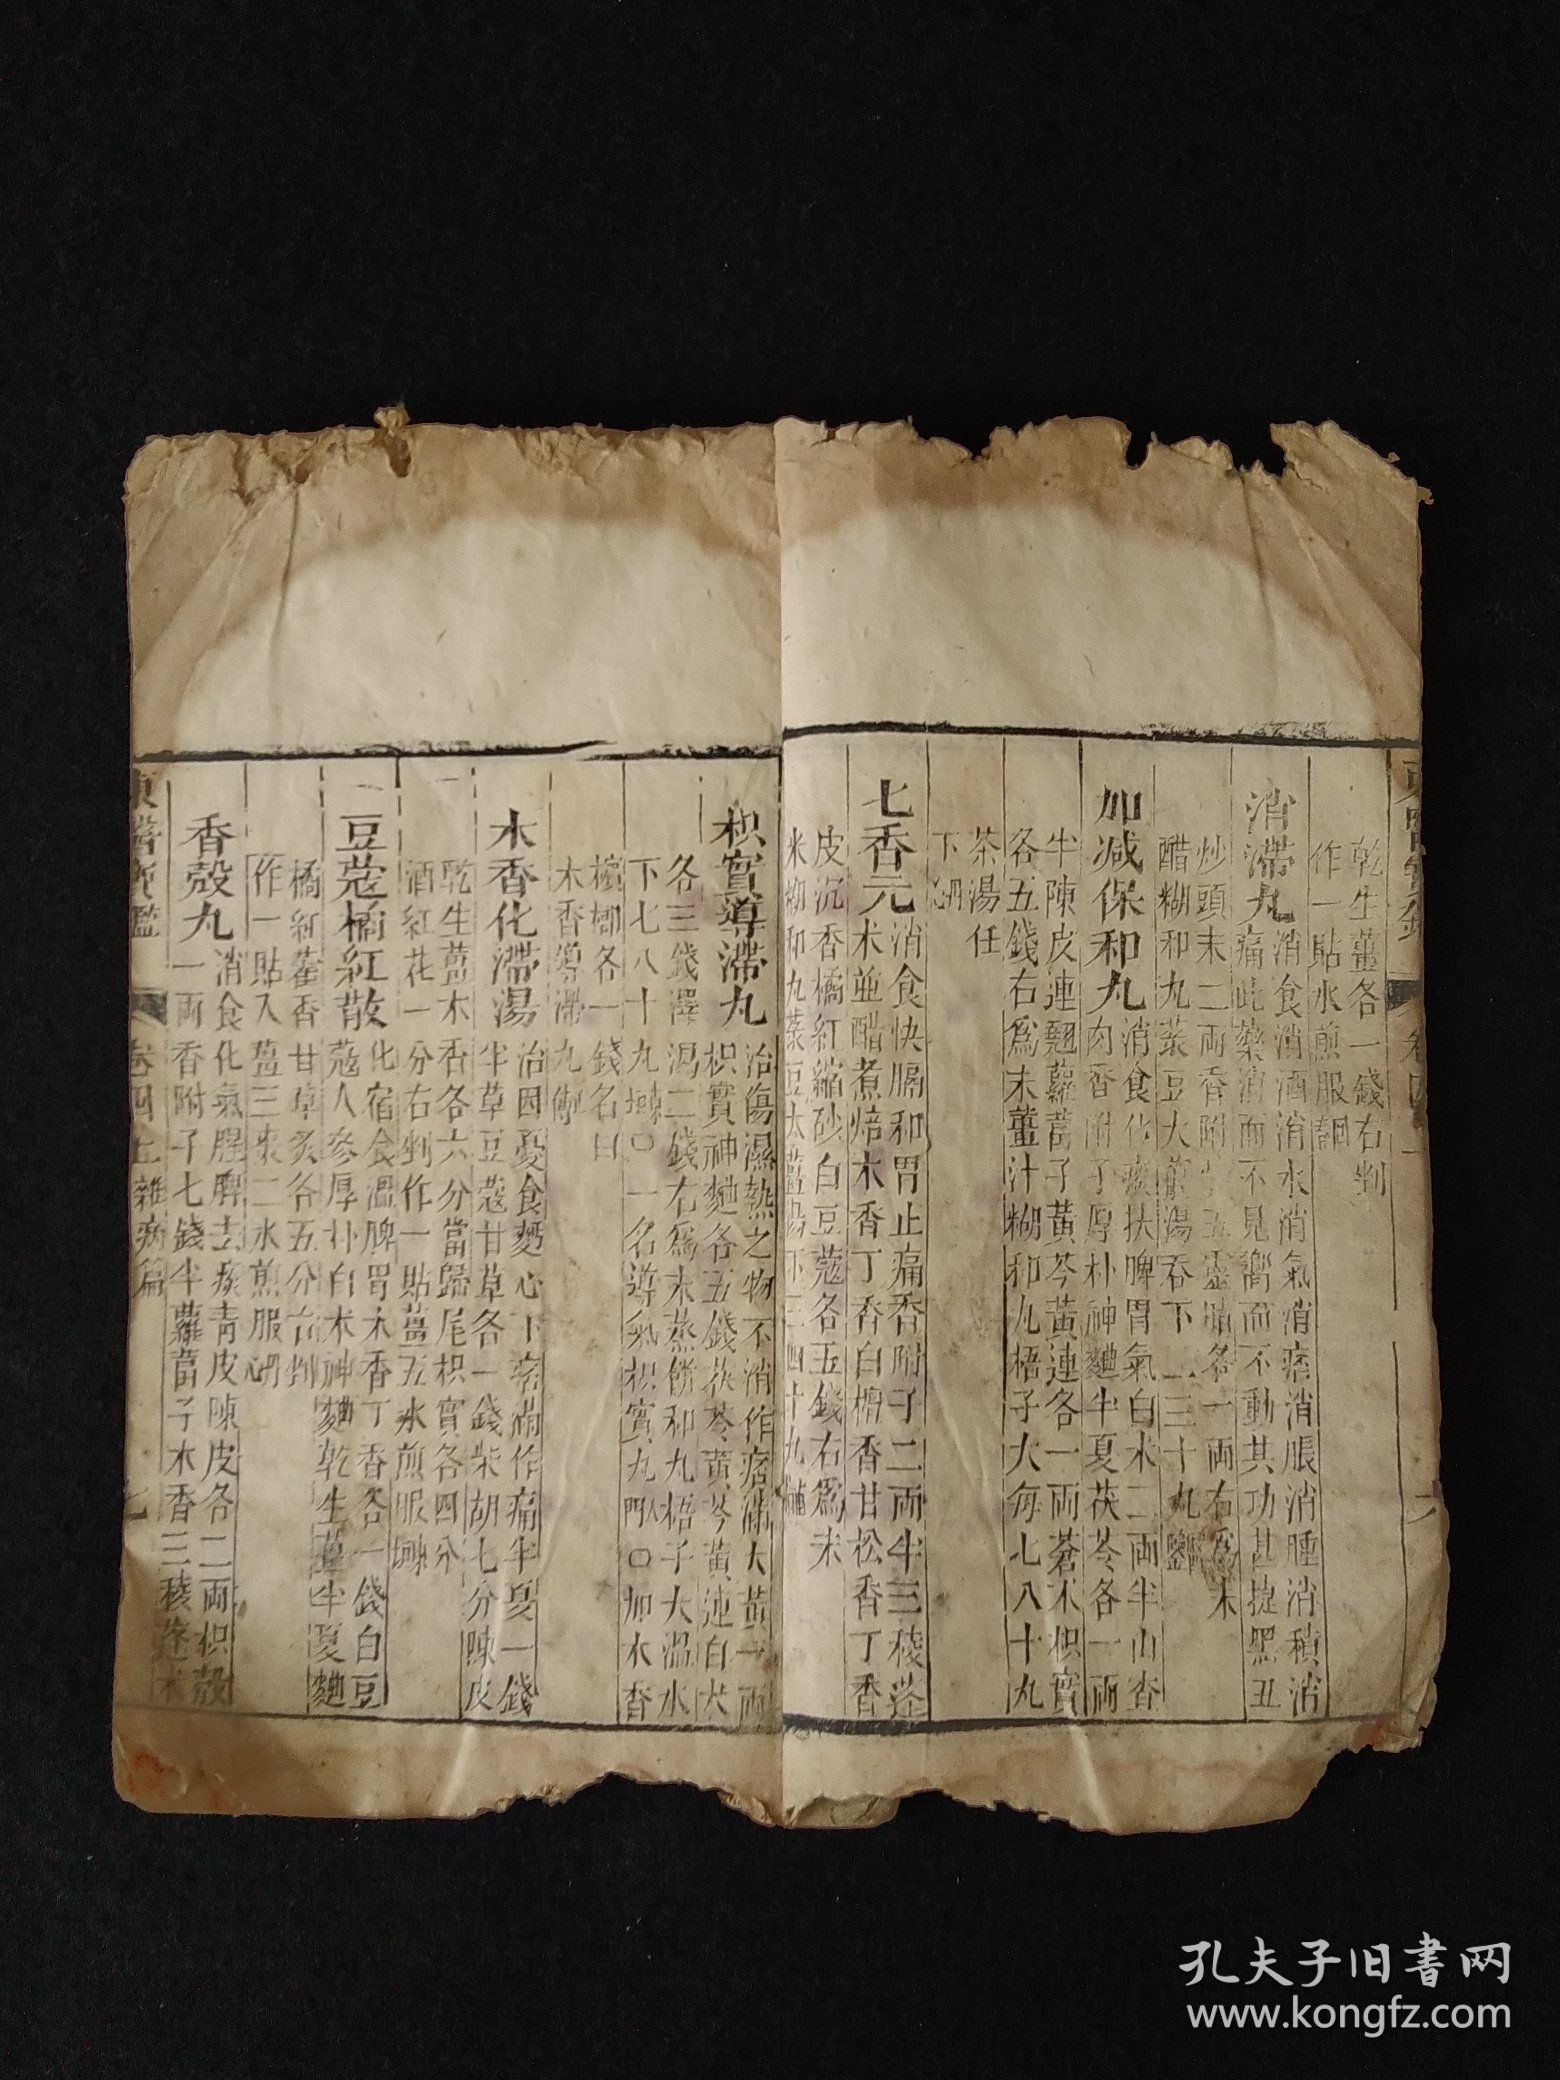 乾生薑各一錢右剉
作一貼水煎服
消滯丸
消食消酒消水消氣消痞消脹消腫消積消
痛此藥消而不見嚮而不動其功甚捷黑丑
炒頭末二兩香附 五靈脂各一兩右爲末
醋糊和丸菉豆大 湯吞下二三十丸
加减保和丸
消食化痰扶脾胃氣白朮二兩半山査
肉香附子厚朴神麯半夏茯苓各一兩
半陳皮連翹蘿葍子黃芩黃連各一兩蒼朮枳實
各五錢右爲末薑汁糊和丸梧子大每七八十丸
茶湯任
下
七香元
消食快膈和胃止痛香附子二兩半三稜蓬
朮並醋煮焙木香丁香白檀香甘松香丁香
皮沉香橘紅縮砂白豆蔻各五錢右爲末
米糊和丸菉豆大薑湯下三四十丸
枳實導滯丸
治傷濕熱之物不消作痞滿大黃一兩
枳實神麯各五錢茯苓黃芩黃連白朮
各三錢澤瀉二錢右爲末蒸餠和丸梧子大溫水
下七八十丸〇一名導氣枳實丸〇加木香
檳榔各一錢名曰
木香導滯丸
木香化滯湯
治因憂食麪心下痞滿作痛半夏一錢
半草豆蔻甘草各一錢柴胡七分陳皮
乾生薑木香各六分當歸尾枳實各四分
酒紅花一分右剉作一貼薑五水煎服
豆蔻橘紅散
化宿食溫脾胃木香丁香各一錢白豆
蔻人參厚朴白朮神麯乾生薑半夏麯
橘紅藿香甘草炙各五分右剉
作一貼入薑三棗二水煎服
香殼丸
消食化氣醒脾去痰青皮陳皮各二兩枳殼
一兩香附子七錢半蘿葍子木香三稜蓬朮
東醫寶鑑 卷四上雜病篇 七
孔夫子旧书网
www.kongfz.com